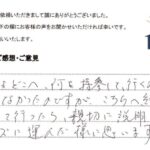 依頼いただきまして誠にありがとうございました。
にお客様の声をお聞かせいただければ幸いです。
いいたします。
ご感想・ご意見
どこへ、何を持参して、行く
なかったのですが、こちらへ
て行ったら、親切に説明
ズに運んだ様に思います